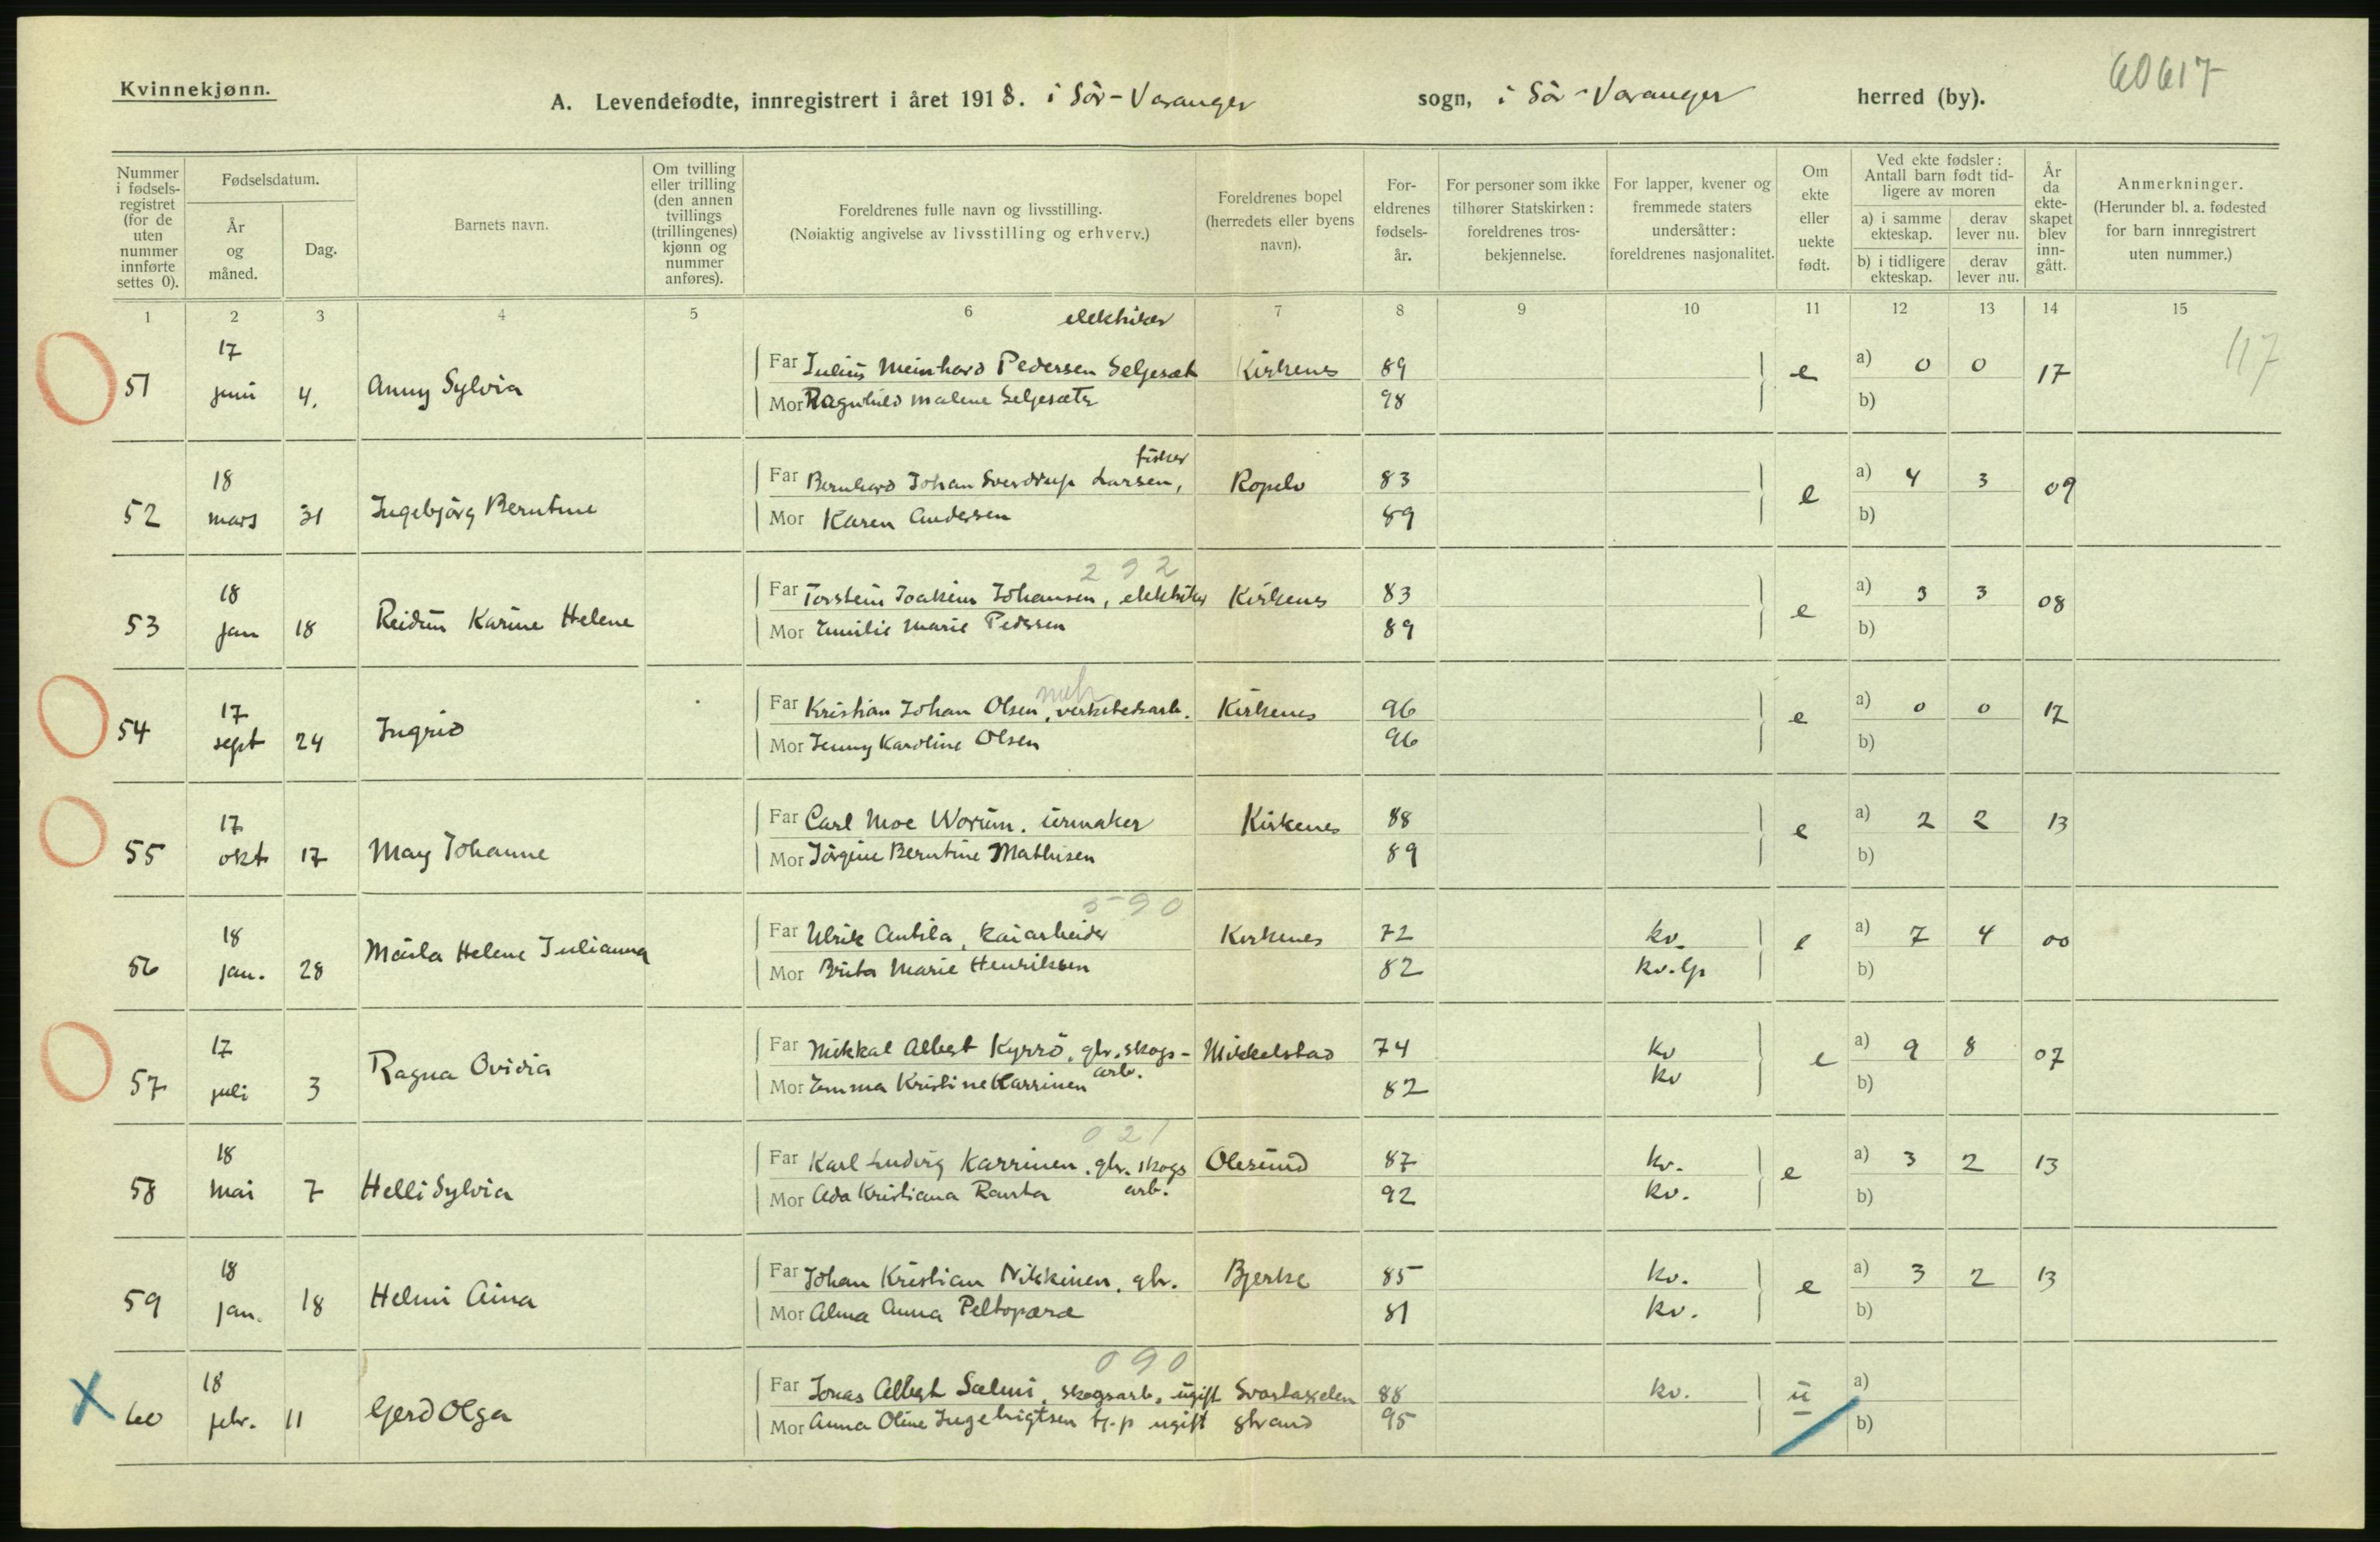 60617
Kvinnekjønn.
A. Levendefødte, innregistrert i året 1918. i Sör-Varanger sogn, i Sör-Varanger herred (by).
Nummer i fødsels-registret (for de uten nummer innførte settes 0).
Fødselsdatum.
År og måned.
Dag.
Barnets navn.
Om tvilling eller trilling (den annen tvillings (trillingenes) kjønn og nummer anføres).
Foreldrenes fulle navn og livsstilling.
(Nøiaktig angivelse av livsstilling og erhverv.)
Foreldrenes bopel (herredets eller byens navn).
For-eldrenes fødsels-år.
For personer som ikke tilhører Statskirken: foreldrenes tros-bekjennelse.
For lapper, kvener og fremmede staters undersåtter: foreldrenes nasjonalitet.
Om ekte eller uekte født.
Ved ekte fødsler: Antall barn født tid-ligere av moren
a) i samme ekteskap.
derav lever nu.
b) i tidligere ekteskap.
derav lever nu.
År da ekte-skapet blev inn-gått.
Anmerkninger.
(Herunder bl. a. fødested for barn innregistrert uten nummer.)
1 2 3 4 5 6 7 8 9 10 11 12 13 14 15
elektriker
117
51 17 juni 4. Anny Sylvia
Far Julius Meinhard Pedersen Seljesæt Kirkenes 89 e a) 0 0 17
Mor Ragnhild Malene Seljesæter 98 b)
fisker
52 18 mars 31 Ingebjörg Berntine
Far Bernhard Johan Sverdrup Larsen, Ropelv 83 e a) 4 3 09
Mor Karen Andersen 89 b)
292
53 18 jan 18 Reidun Karine Helene
Far Torstein Joakim Johansen, elektriker Kirkenes 83 e a) 3 3 08
Mor Emilie Marie Pedersen 89 b)
54 17 sept 24 Ingrid
Far Kristian Johan Olsen, verkstedsarb. Kirkenes 96 e a) 0 0 17
Mor Jenny Karoline Olsen 96 b)
55 17 okt 17 May Johanne
Far Carl Moe Worum. urmaker Kirkenes 88 e a) 2 2 13
Mor Jörgine Berntine Mathisen 89 b)
590
56 18 jan. 28 Helene Julianna
Far Ulrik Antila, kaiarbeider Kirkenes 72 kv. e a) 7 4 00
Mor Brita Marie Henriksen 82 kv. lp b)
57 17 juli 3 Ragna Ovidia
Far Mikkal Albert Kyrrö, gbr. skogs- Mikkelstad 74 kv e a) 9 8 07
arb.
Mor Emma Kristine Karrinen 82 kv b)
021
58 18 mai 7 Helli Sylvia
Far Karl Ludvig Karrinen, gbr. skogs Olesund 87 kv. e a) 3 2 13
Mor Ada Kristiana Ranta arb. 92 kv. b)
59 18 jan. 18 Helmi Aina
Far Johan Kristian Nikkinen, gbr. Bjerke 85 kv. e a) 3 2 13
Mor Alma Anna Peltoperä 81 kv. b)
090
X 60 18 febr. 11 Gerd Olga
Far Jonas Albert Salmi, skogsarb, ugift Svartaxelen 88 kv. u a)
Mor Anna Oline Ingebrigtsen tj.p ugift strand 95 b)